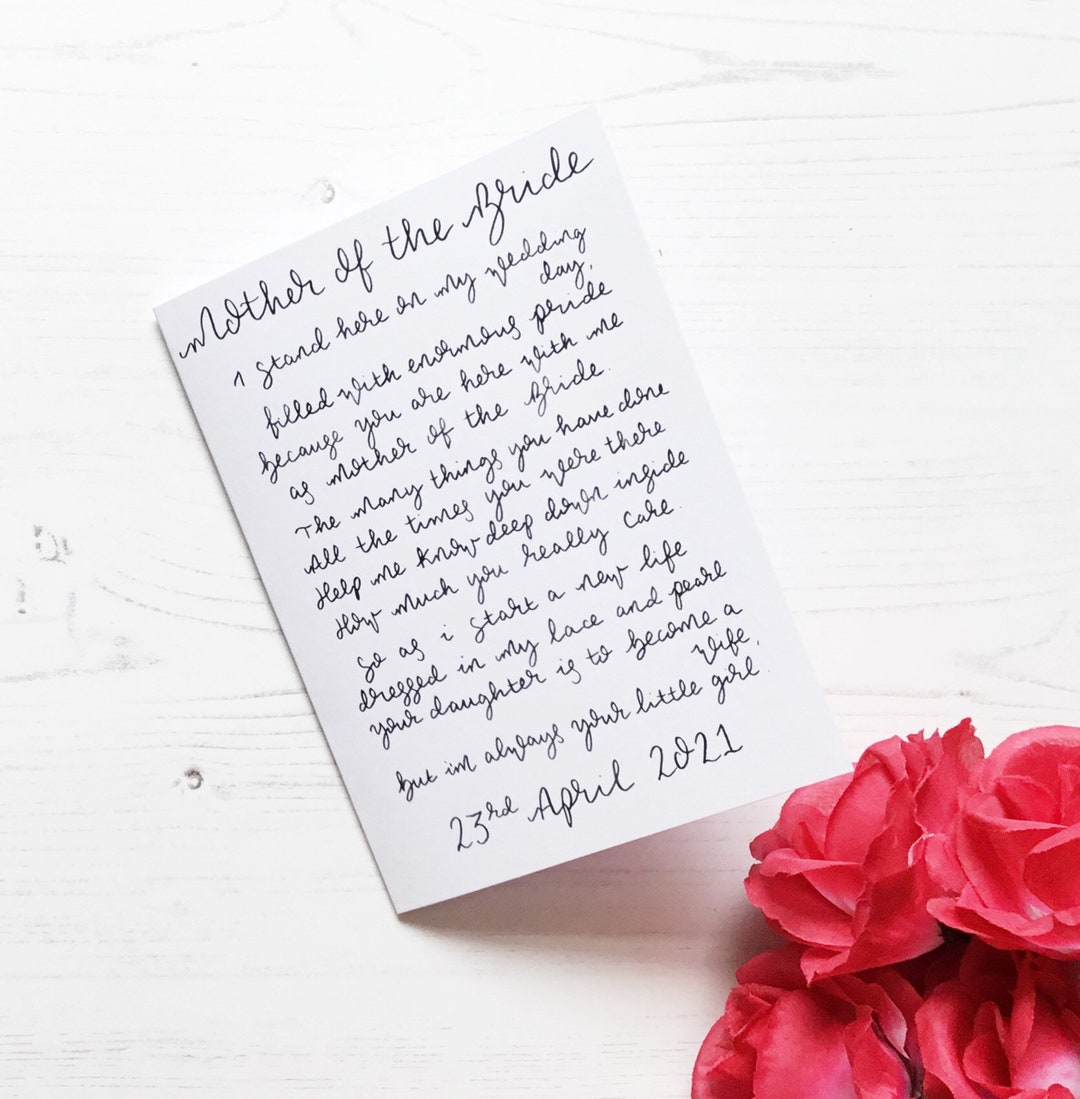 Mother of the Bride
I stand here on my wedding
day,
filled with enormous pride
because you are here with me
as Mother of the Bride.
The many things you have done
All the times you were there
Help me know deep down inside
How much you really care.
So as i start a new life
dressed in my lace and pearl
your daughter is to become a
wife,
but im always your little girl.
23rd April 2021